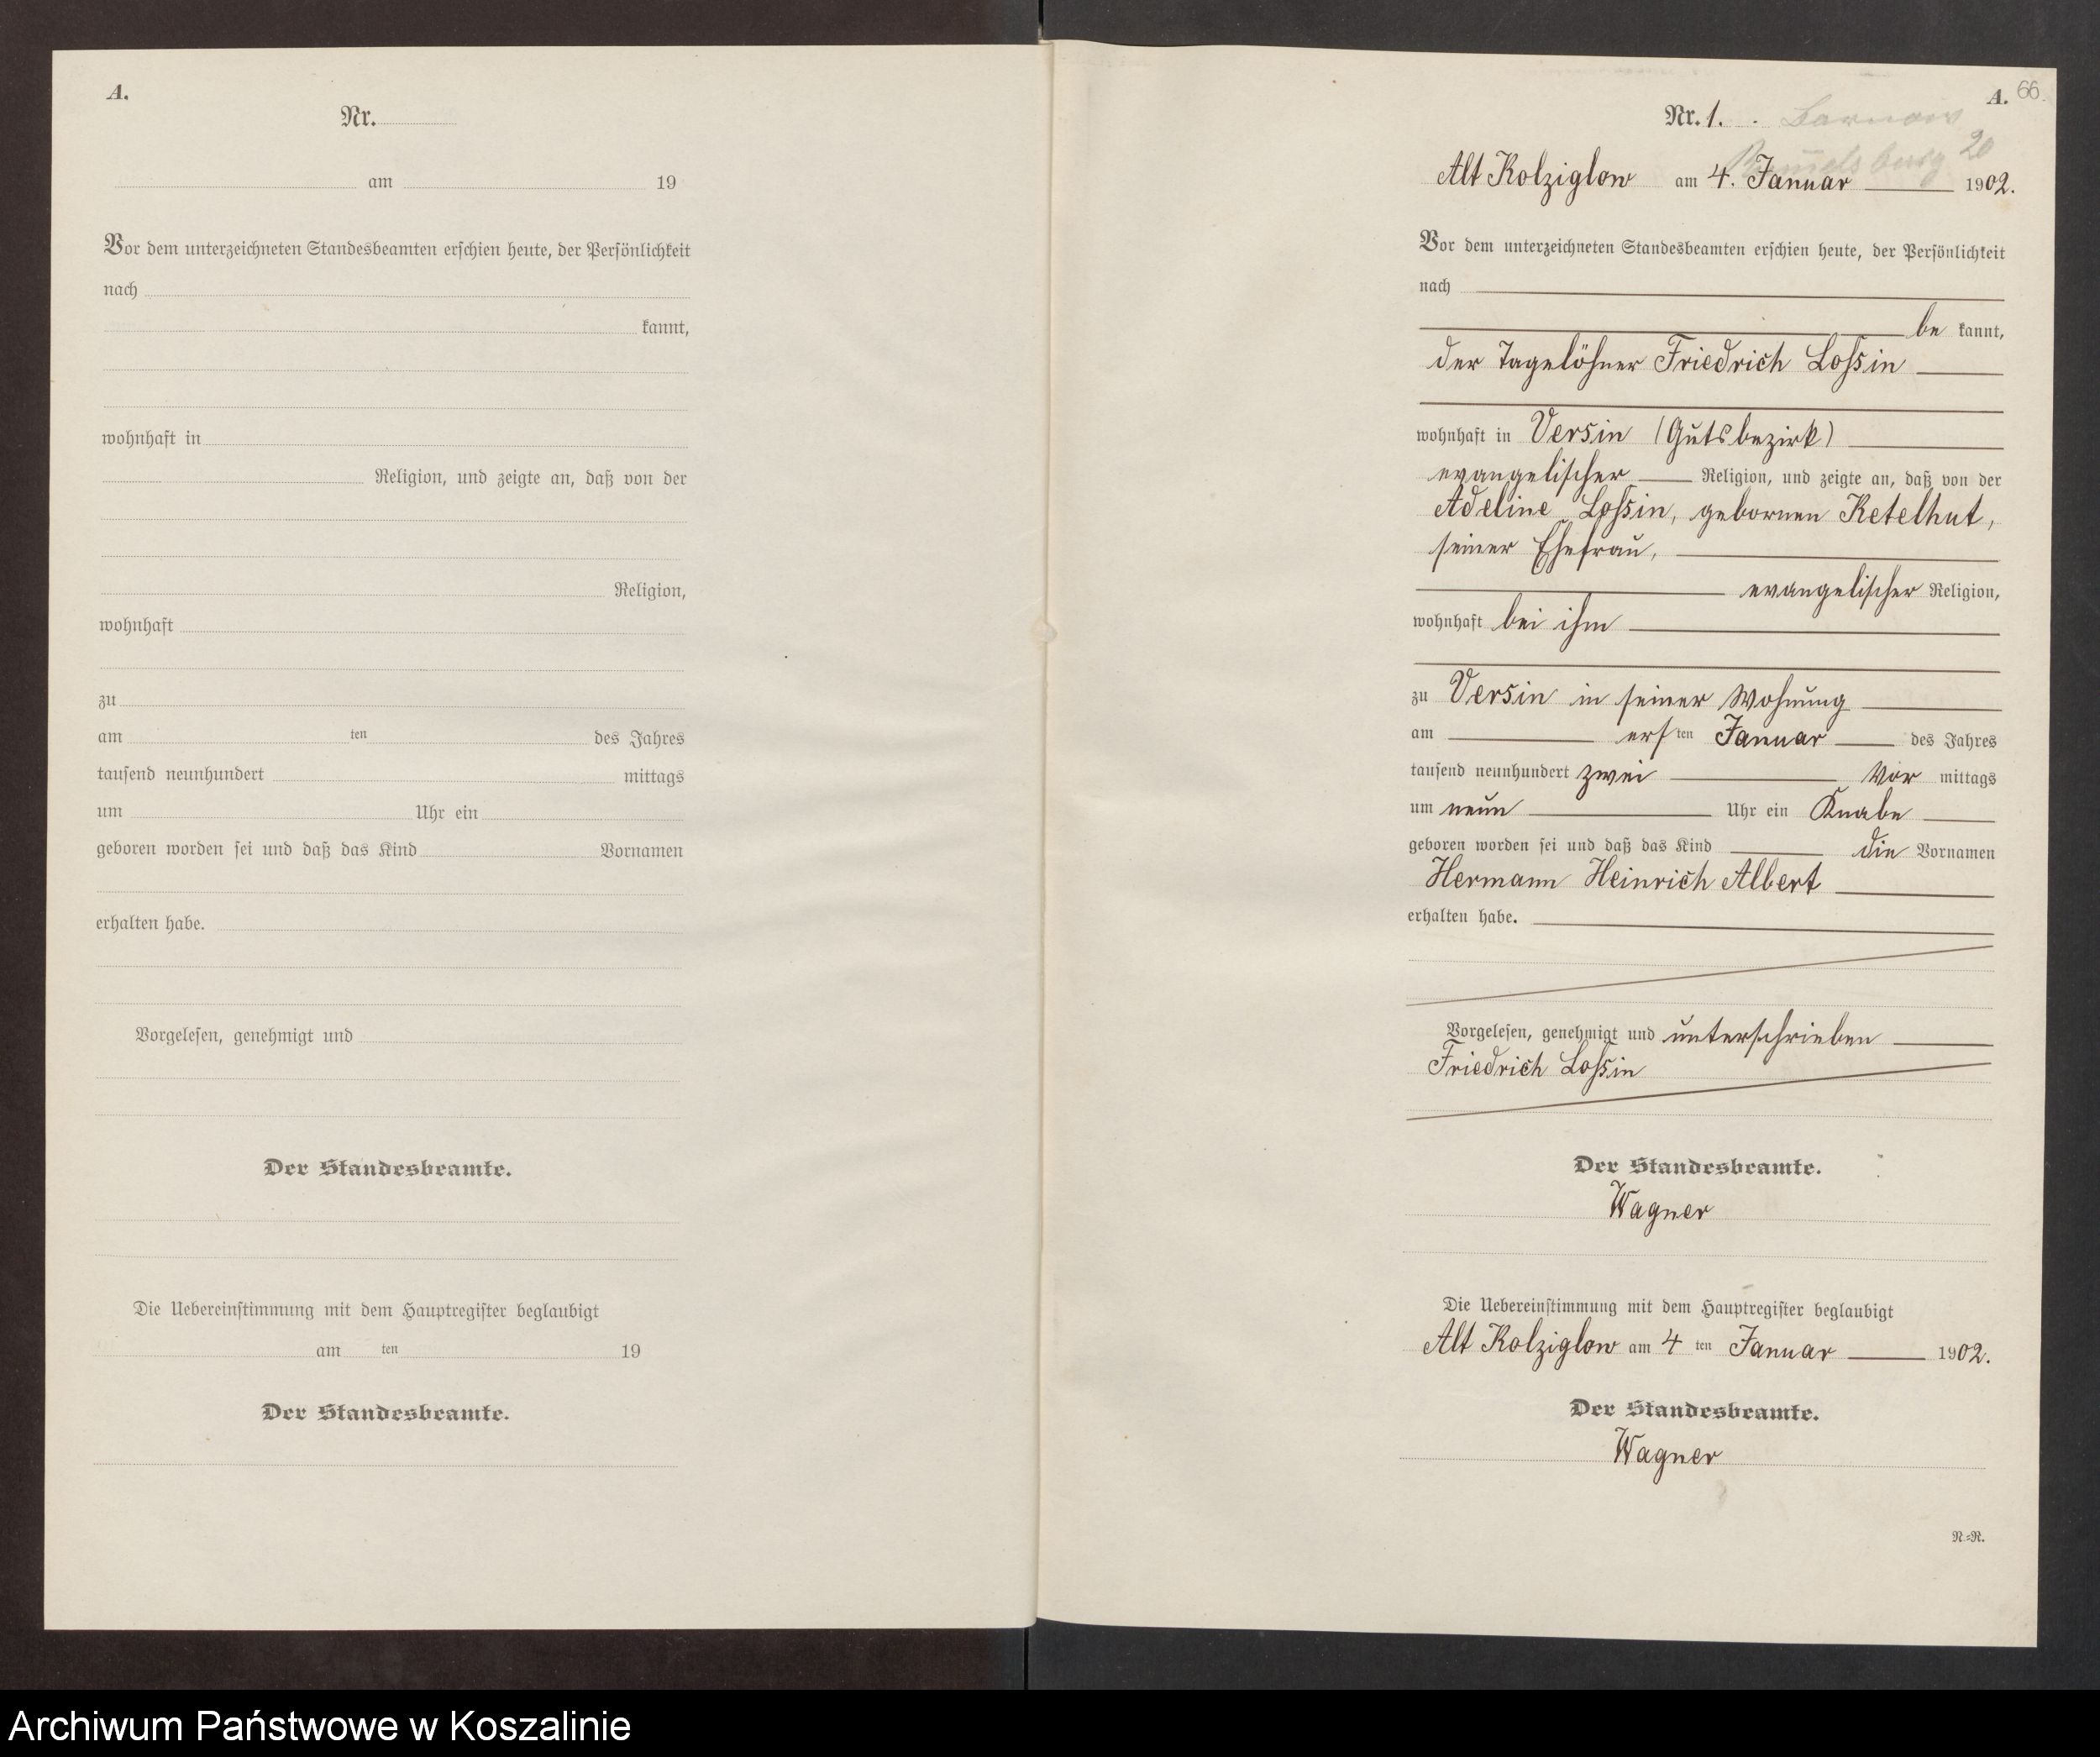 A.
Nr.
am 19
Vor dem unterzeichneten Standesbeamten erschien heute, der Persönlichkeit
nach
kannt,
wohnhaft in
Religion, und zeigte an, daß von der
Religion,
wohnhaft
zu
am ten des Jahres
tausend neunhundert mittags
um Uhr ein
geboren worden sei und daß das Kind Vornamen
erhalten habe.
Vorgelesen, genehmigt und
Der Standesbeamte.
Die Uebereinstimmung mit dem Hauptregister beglaubigt
am ten 19
Der Standesbeamte.
A. 66.
Nr. 1. Barnow
Rummelsburg 20
Alt Kolziglow am 4. Januar 1902.
Vor dem unterzeichneten Standesbeamten erschien heute, der Persönlichkeit
nach
be kannt,
der Tagelöhner Friedrich Lossin
wohnhaft in Versin (Gutsbezirk)
evangelischer Religion, und zeigte an, daß von der
Adeline Lossin, gebornen Ketelhut,
seiner Ehefrau,
evangelischer Religion,
wohnhaft bei ihm
zu Versin in seiner Wohnung
am ersten Januar des Jahres
tausend neunhundert zwei Vor mittags
um neun Uhr ein Knabe
geboren worden sei und daß das Kind die Vornamen
Hermann Heinrich Albert
erhalten habe.
Vorgelesen, genehmigt und unterschrieben
Friedrich Lossin
Der Standesbeamte.
Wagner
Die Uebereinstimmung mit dem Hauptregister beglaubigt
Alt Kolziglow am 4 ten Januar 1902.
Der Standesbeamte.
Wagner
N.=R.
Archiwum Państwowe w Koszalinie